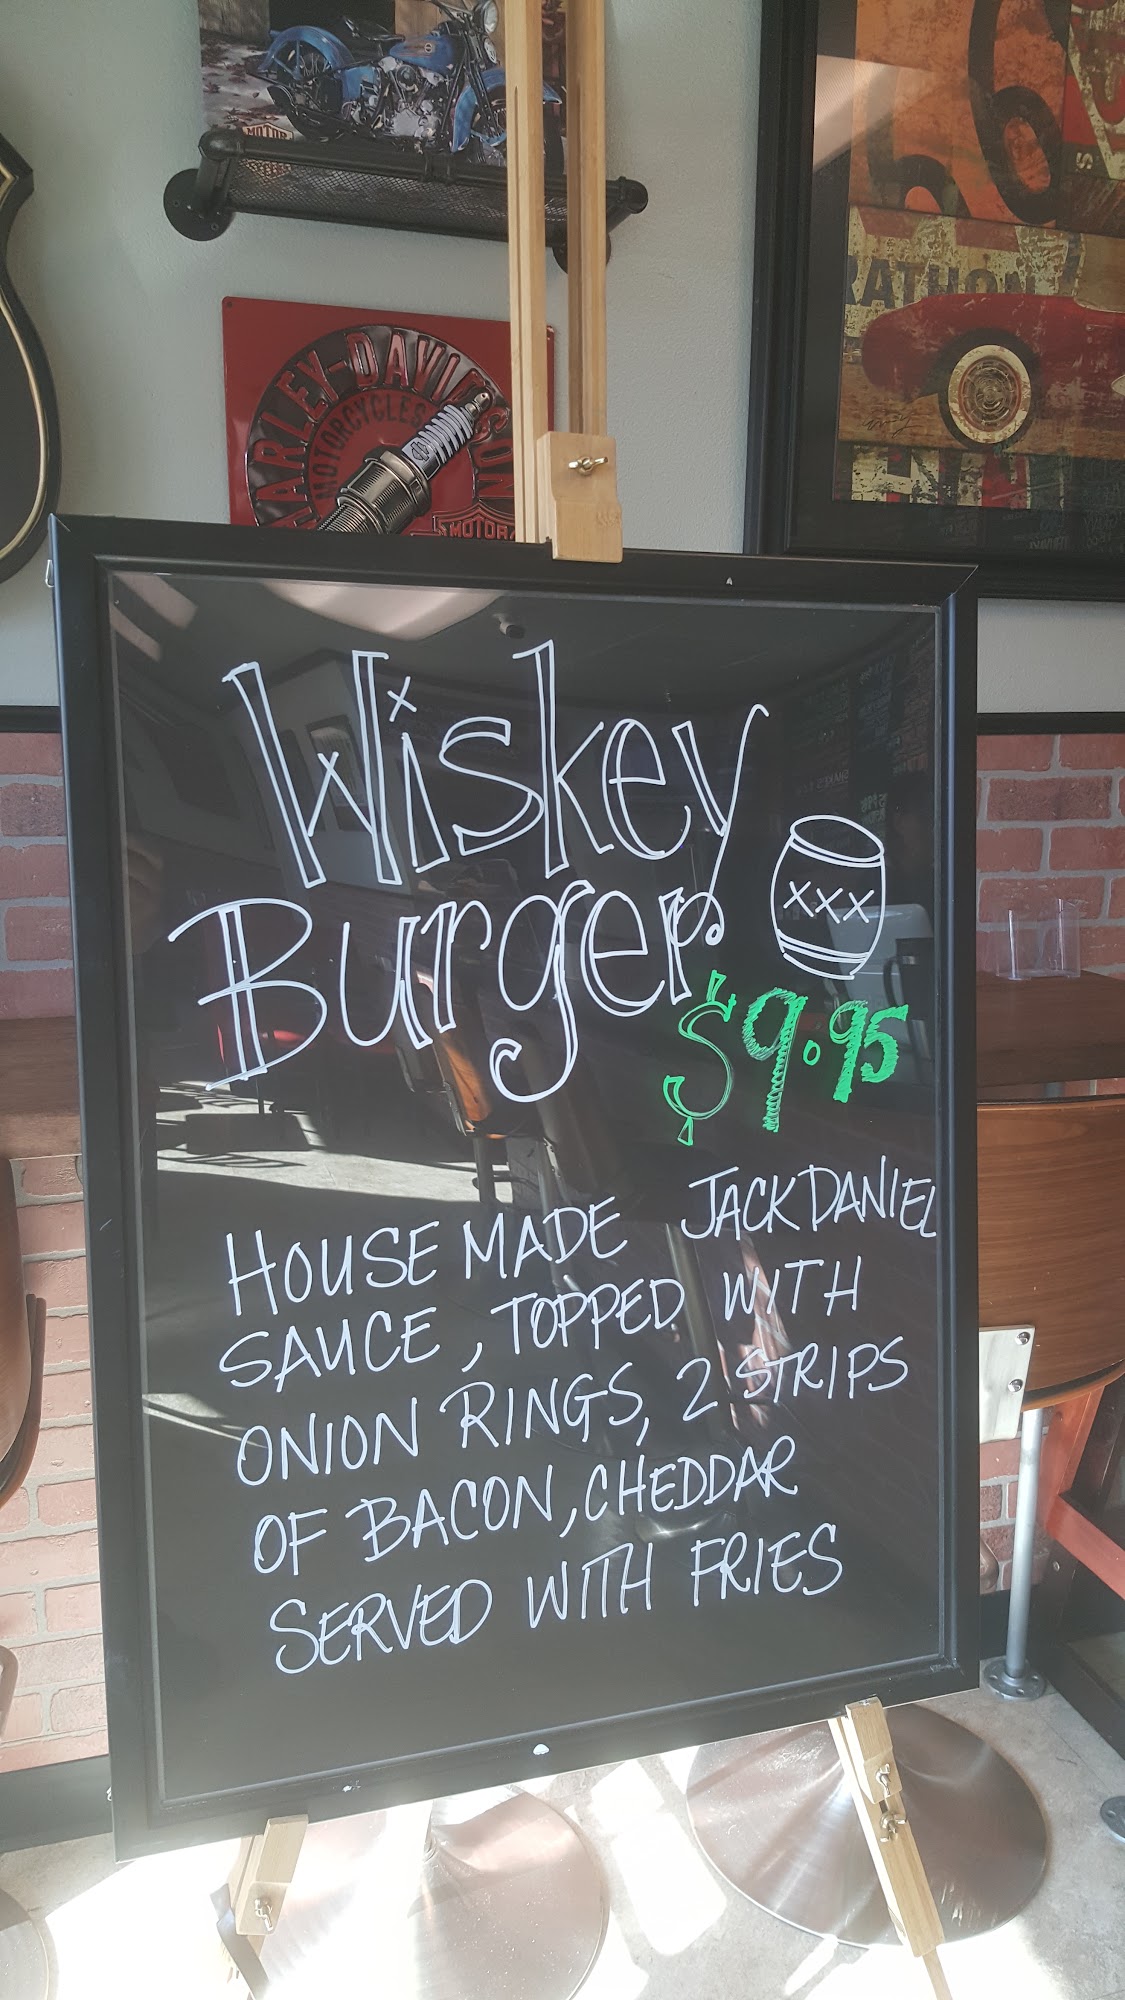 MOTOR
HARLEY-DAVIDSON
MOTORCYCLES
MOTOR
66
Wiskey
Burger
XXX
$9.95
HOUSE MADE JACK DANIEL
SAUCE, TOPPED WITH
ONION RINGS, 2 STRIPS
OF BACON, CHEDDAR
SERVED WITH FRIES